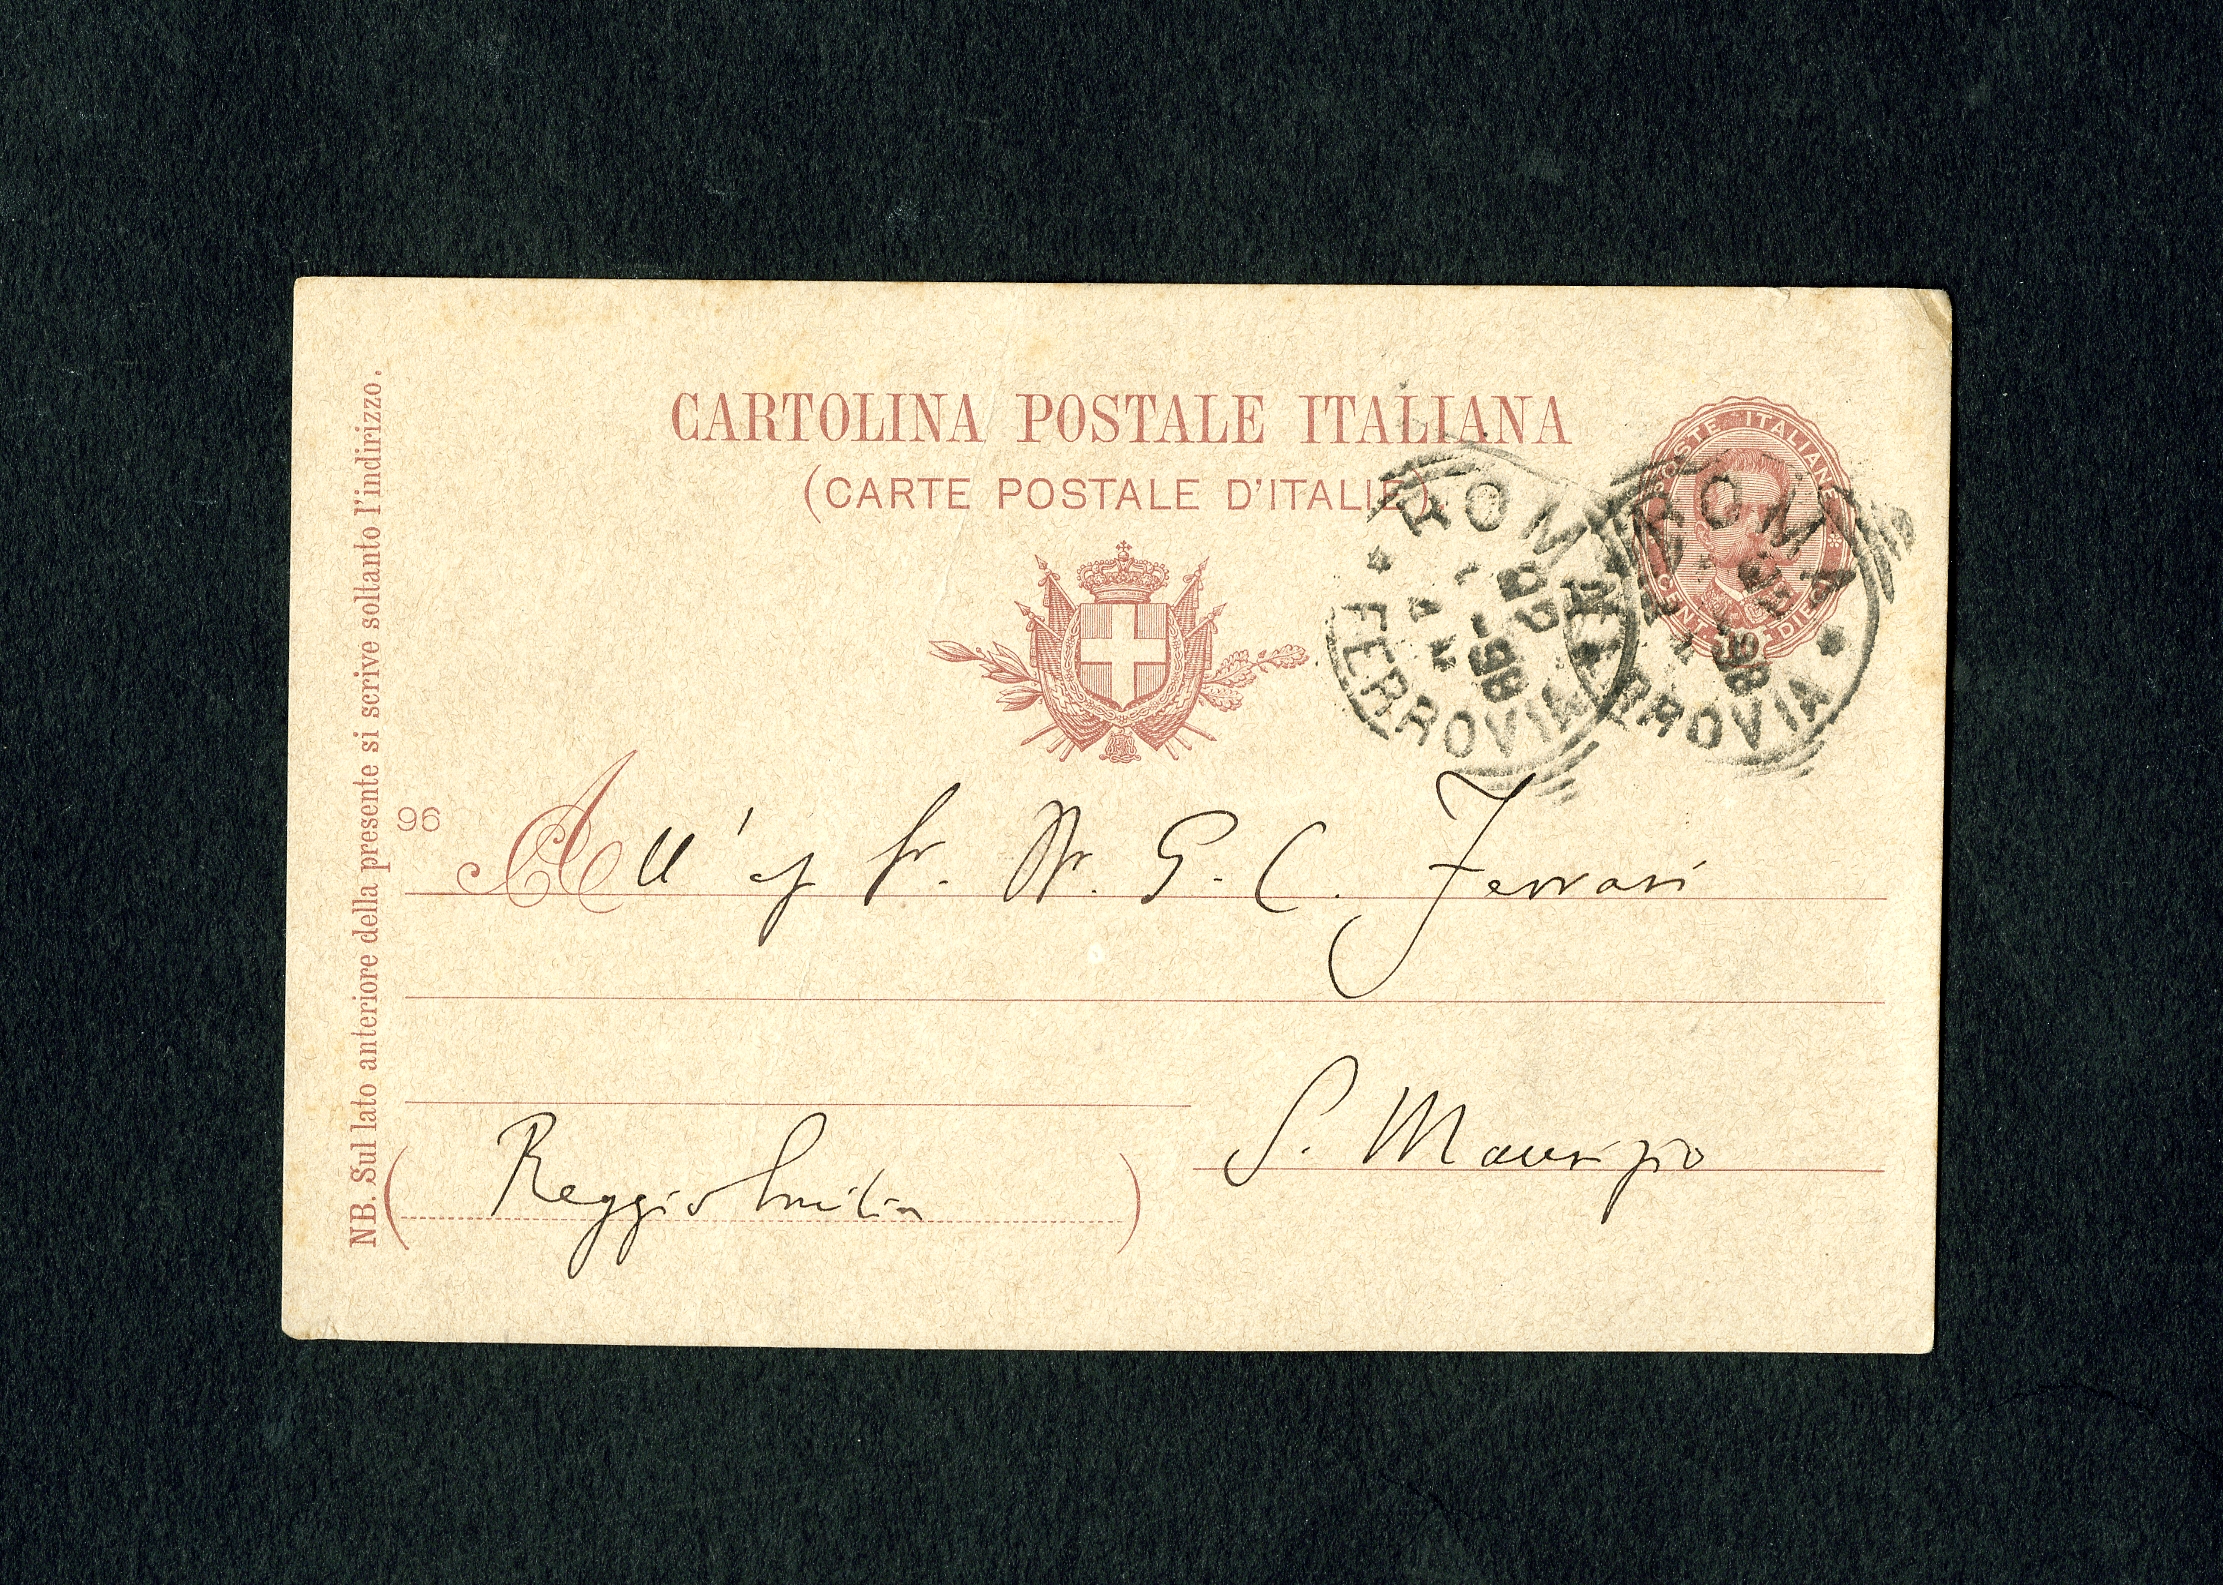 CARTOLINA POSTALE ITALIANA
(CARTE POSTALE D'ITALIE)
POSTE ITALIANE
CENT. DIECI
ROMA
FERROVIA
98
ROMA
FERROVIA
98
NB. Sul lato anteriore della presente si scrive soltanto l'indirizzo.
96
All' G. C. Ferrari
S. Maurizio
(Reggio Emilia)